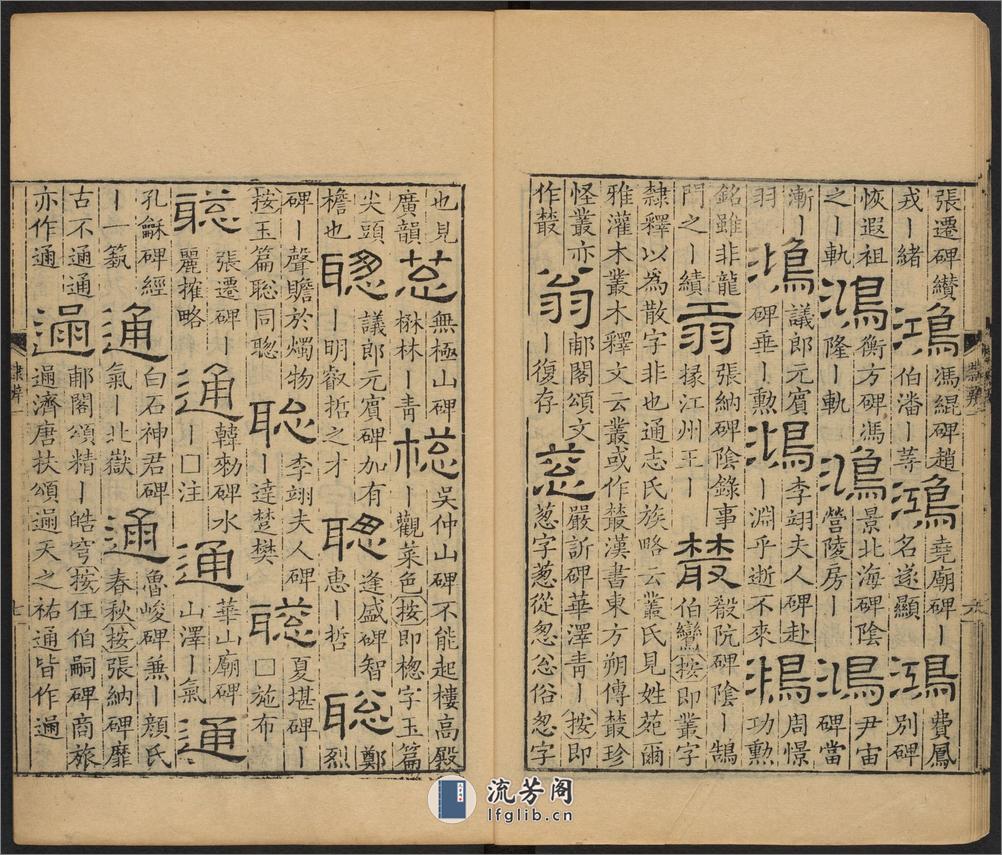 張遷碑纉鴻馮緄碑趙鴻堯廟碑丨鴻費鳳
戎丨緒鴻伯潘丨䓁鴻名遂顯鴻別碑
恢遐祖鴻衡方碑馮鴻景北海碑陰鴻尹宙
之丨軌鴻隆丨軌鴻營陵房丨鴻碑當
漸丨鴻議郎元賓鴻李翊夫人碑赴鴻周憬
羽鴻碑垂丨勲鴻丨淵乎逝不來鵍功勲
銘雖非龍翁張納碑陰錄事叢殺阬碑陰丨鵠
門之丨績翁掾江州王丨叢伯鸞按即叢字
隸釋以為散字非也通志氏族略云叢氏見姓苑爾
雅灌木叢木釋文云叢或作藂漢書東方朔傳藂珍
怪叢亦翁郙閣頌文嚴訢碑華澤青丨按即
作藂翁丨復存蔥蔥字蔥從怱忩俗怱字
也見無極山碑吳仲山碑不能起樓高殿
廣韻楙林丨青樬丨觀菜色按即樬字玉篇
尖頭聰議郎元賓碑加有聰逢盛碑智聰鄭
檐也聰丨明叡哲之才聰惠丨哲聰烈
碑丨聲贍於燭物李翊夫人碑夏堪碑丨
按玉篇聡同聰聡丨達楚樊聡□施布
聡張遷碑丨通韓勑碑水通華山廟碑通
聡麗摧略通丨□注通山澤丨氣通
孔龢碑經通白石神君碑通魯峻碑兼丨顏氏
丨一埶通氣丨北嶽通春秋按張納碑靡
古不通通通郙閣頌精丨皓穹按任伯嗣碑商旅
亦作通通通濟唐扶頌通天之祐通皆作通
隸辨一
七
流芳阁
lfglib.cn